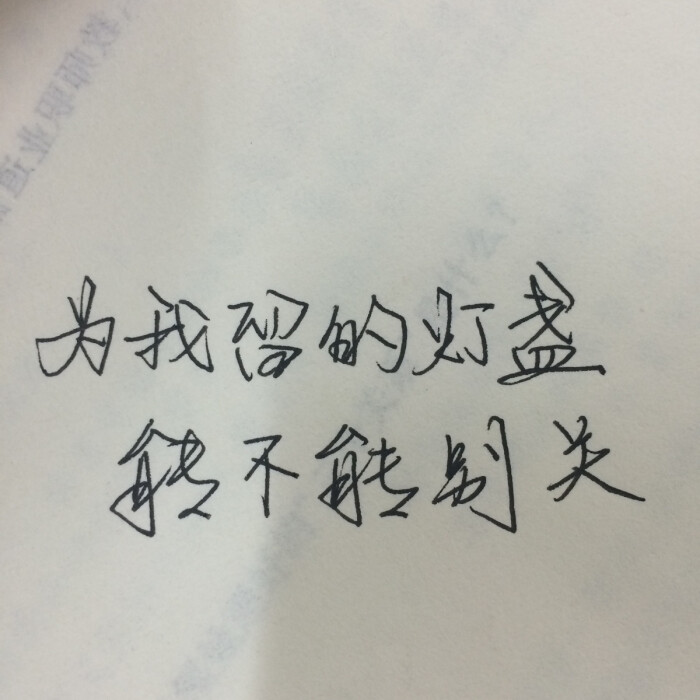 为我留的灯盏
能不能别关